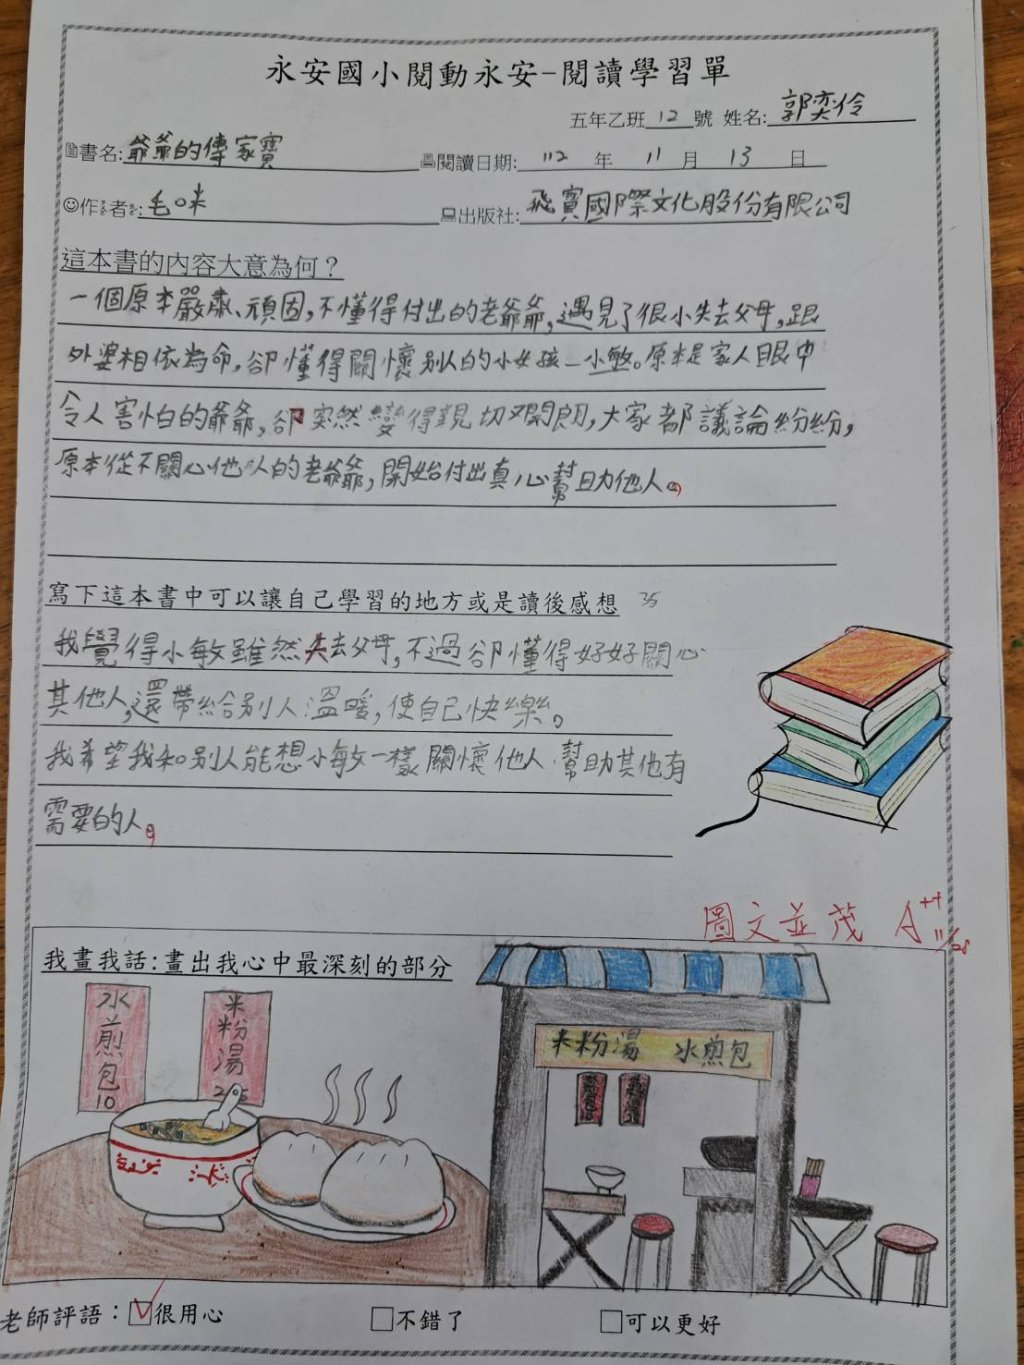 永安國小閱動永安-閱讀學習單
五年乙班 12 號 姓名: 郭奕伶
書名: 爺爺的傳家寶 閱讀日期: 112 年 11 月 13 日
作者: 毛咪 出版社: 飛寶國際文化股份有限公司
這本書的內容大意為何？
一個原本嚴肅、頑固,不懂得付出的老爺爺,遇見了很小失去父母,跟
外婆相依為命,卻懂得關懷別人的小女孩—小敏。原本是家人眼中
令人害怕的爺爺,卻突然變得親切又開朗,大家都議論紛紛,
原本從不關心他人的老爺爺,開始付出真心幫助他人。
寫下這本書中可以讓自己學習的地方或是讀後感想 35
我覺得小敏雖然失去父母,不過卻懂得好好關心
其他人,還帶給別人溫暖,使自己快樂。
我希望我和別人能想小敏一樣關懷他人 幫助其他有
需要的人。
圖文並茂 A++
11/28
我畫我話:畫出我心中最深刻的部分
水煎包10
米粉湯
米粉湯 水煎包
老師評語： ☑很用心 □不錯了 □可以更好